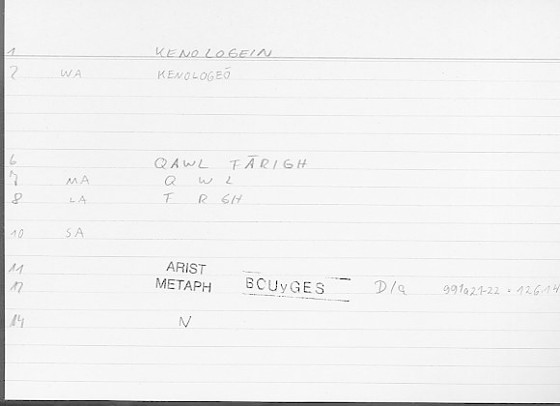 1 KENOLOGEIN
2 WA KENOLOGEŌ
6 QAWL FĀRIGH
7 MA Q W L
8 LA F R GH
10 SA
11 ARIST
12 METAPH BOUyGES D/a 991a21-22 = 126.14
14 N